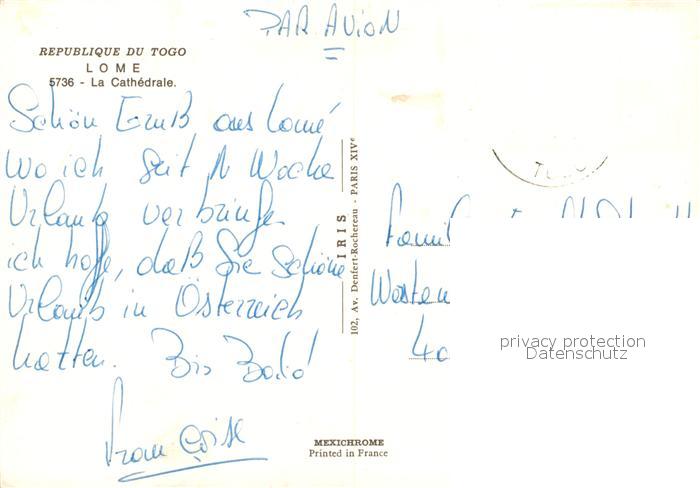 PAR AVION
REPUBLIQUE DU TOGO
LOME
5736 - La Cathédrale.
Schön Gruß aus Lomé
Wo ich seit 1 Woche
Urlaub verbringe
ich hoffe, daß Sie schöne
Urlaub in Österreich
hatten. Bis Bald
Françoise
IRIS
102, Av. Denfert-Rochereau - PARIS XIVe
TOGO
Famil
Westen
40
privacy protection
Datenschutz
MEXICHROME
Printed in France